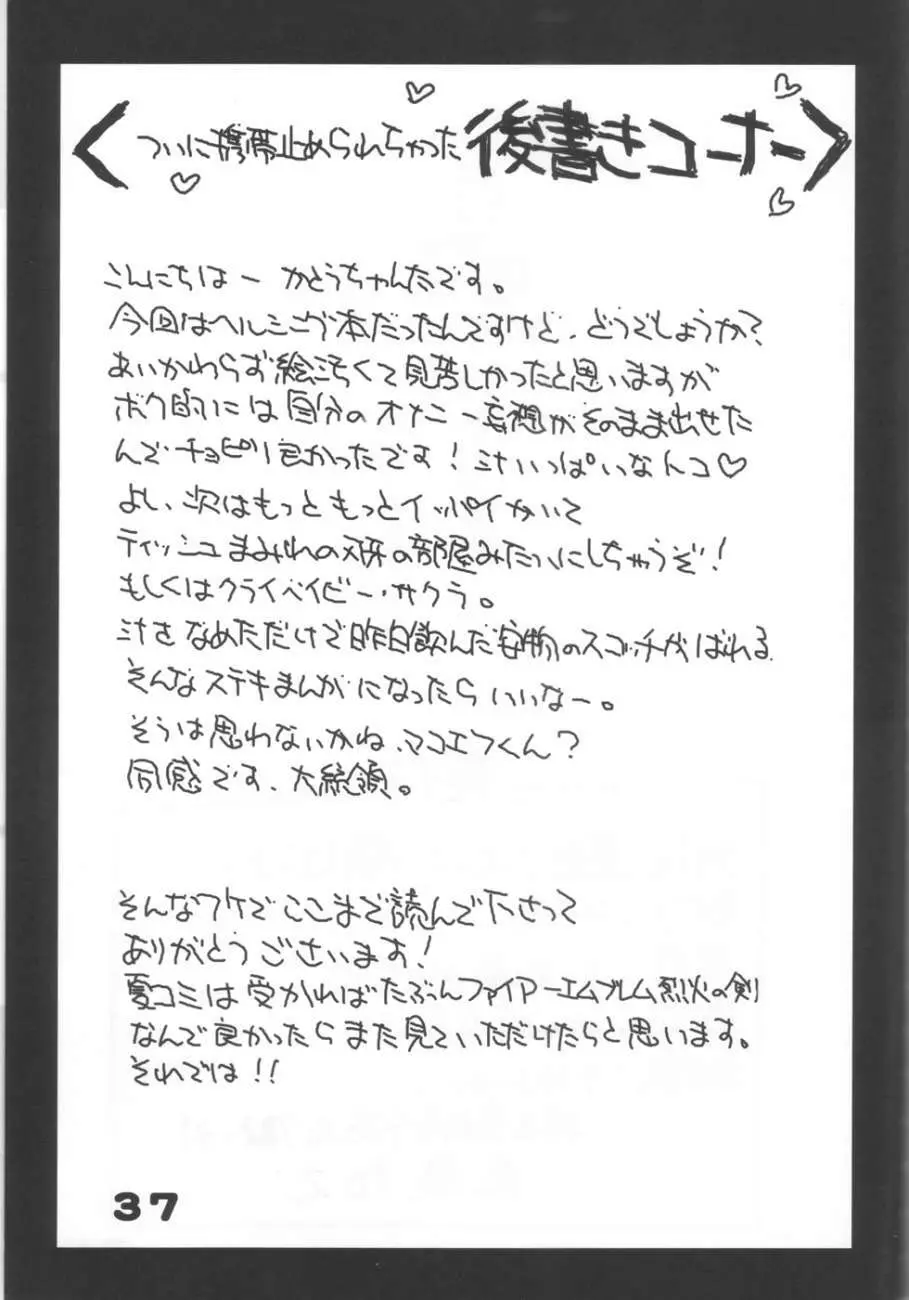 <ついに携帯止められちゃった後書きコーナー>
こんにちはー かとうちゃんたです。
今回はヘルシング本だったんですけど、どうでしょうか?
あいかわらず絵汚くて見苦しかったと思いますが
ボク的には自分のオナニー妄想がそのまま出せた
んでチョピリ良かったです!汁いっぱいなんコ♡
よし、次はもっともっとイッパイかいて
ティッシュまみれの部屋みたいにしちゃうぞ!
もしくはクライベイビー・サクラ。
汁をなめただけで昨日飲んだ安物のスコッチがばれる
そんなステキまんがになったらいいなー。
そうは思わないかね、マコエフくん?
同感です、大統領。
そんなワケでここまで読んで下さって
ありがとうございます!
夏コミは受かればたぶんファイアーエムブレム烈火の剣
なんで良かったらまた見ていただけたらと思います。
それでは!!
37